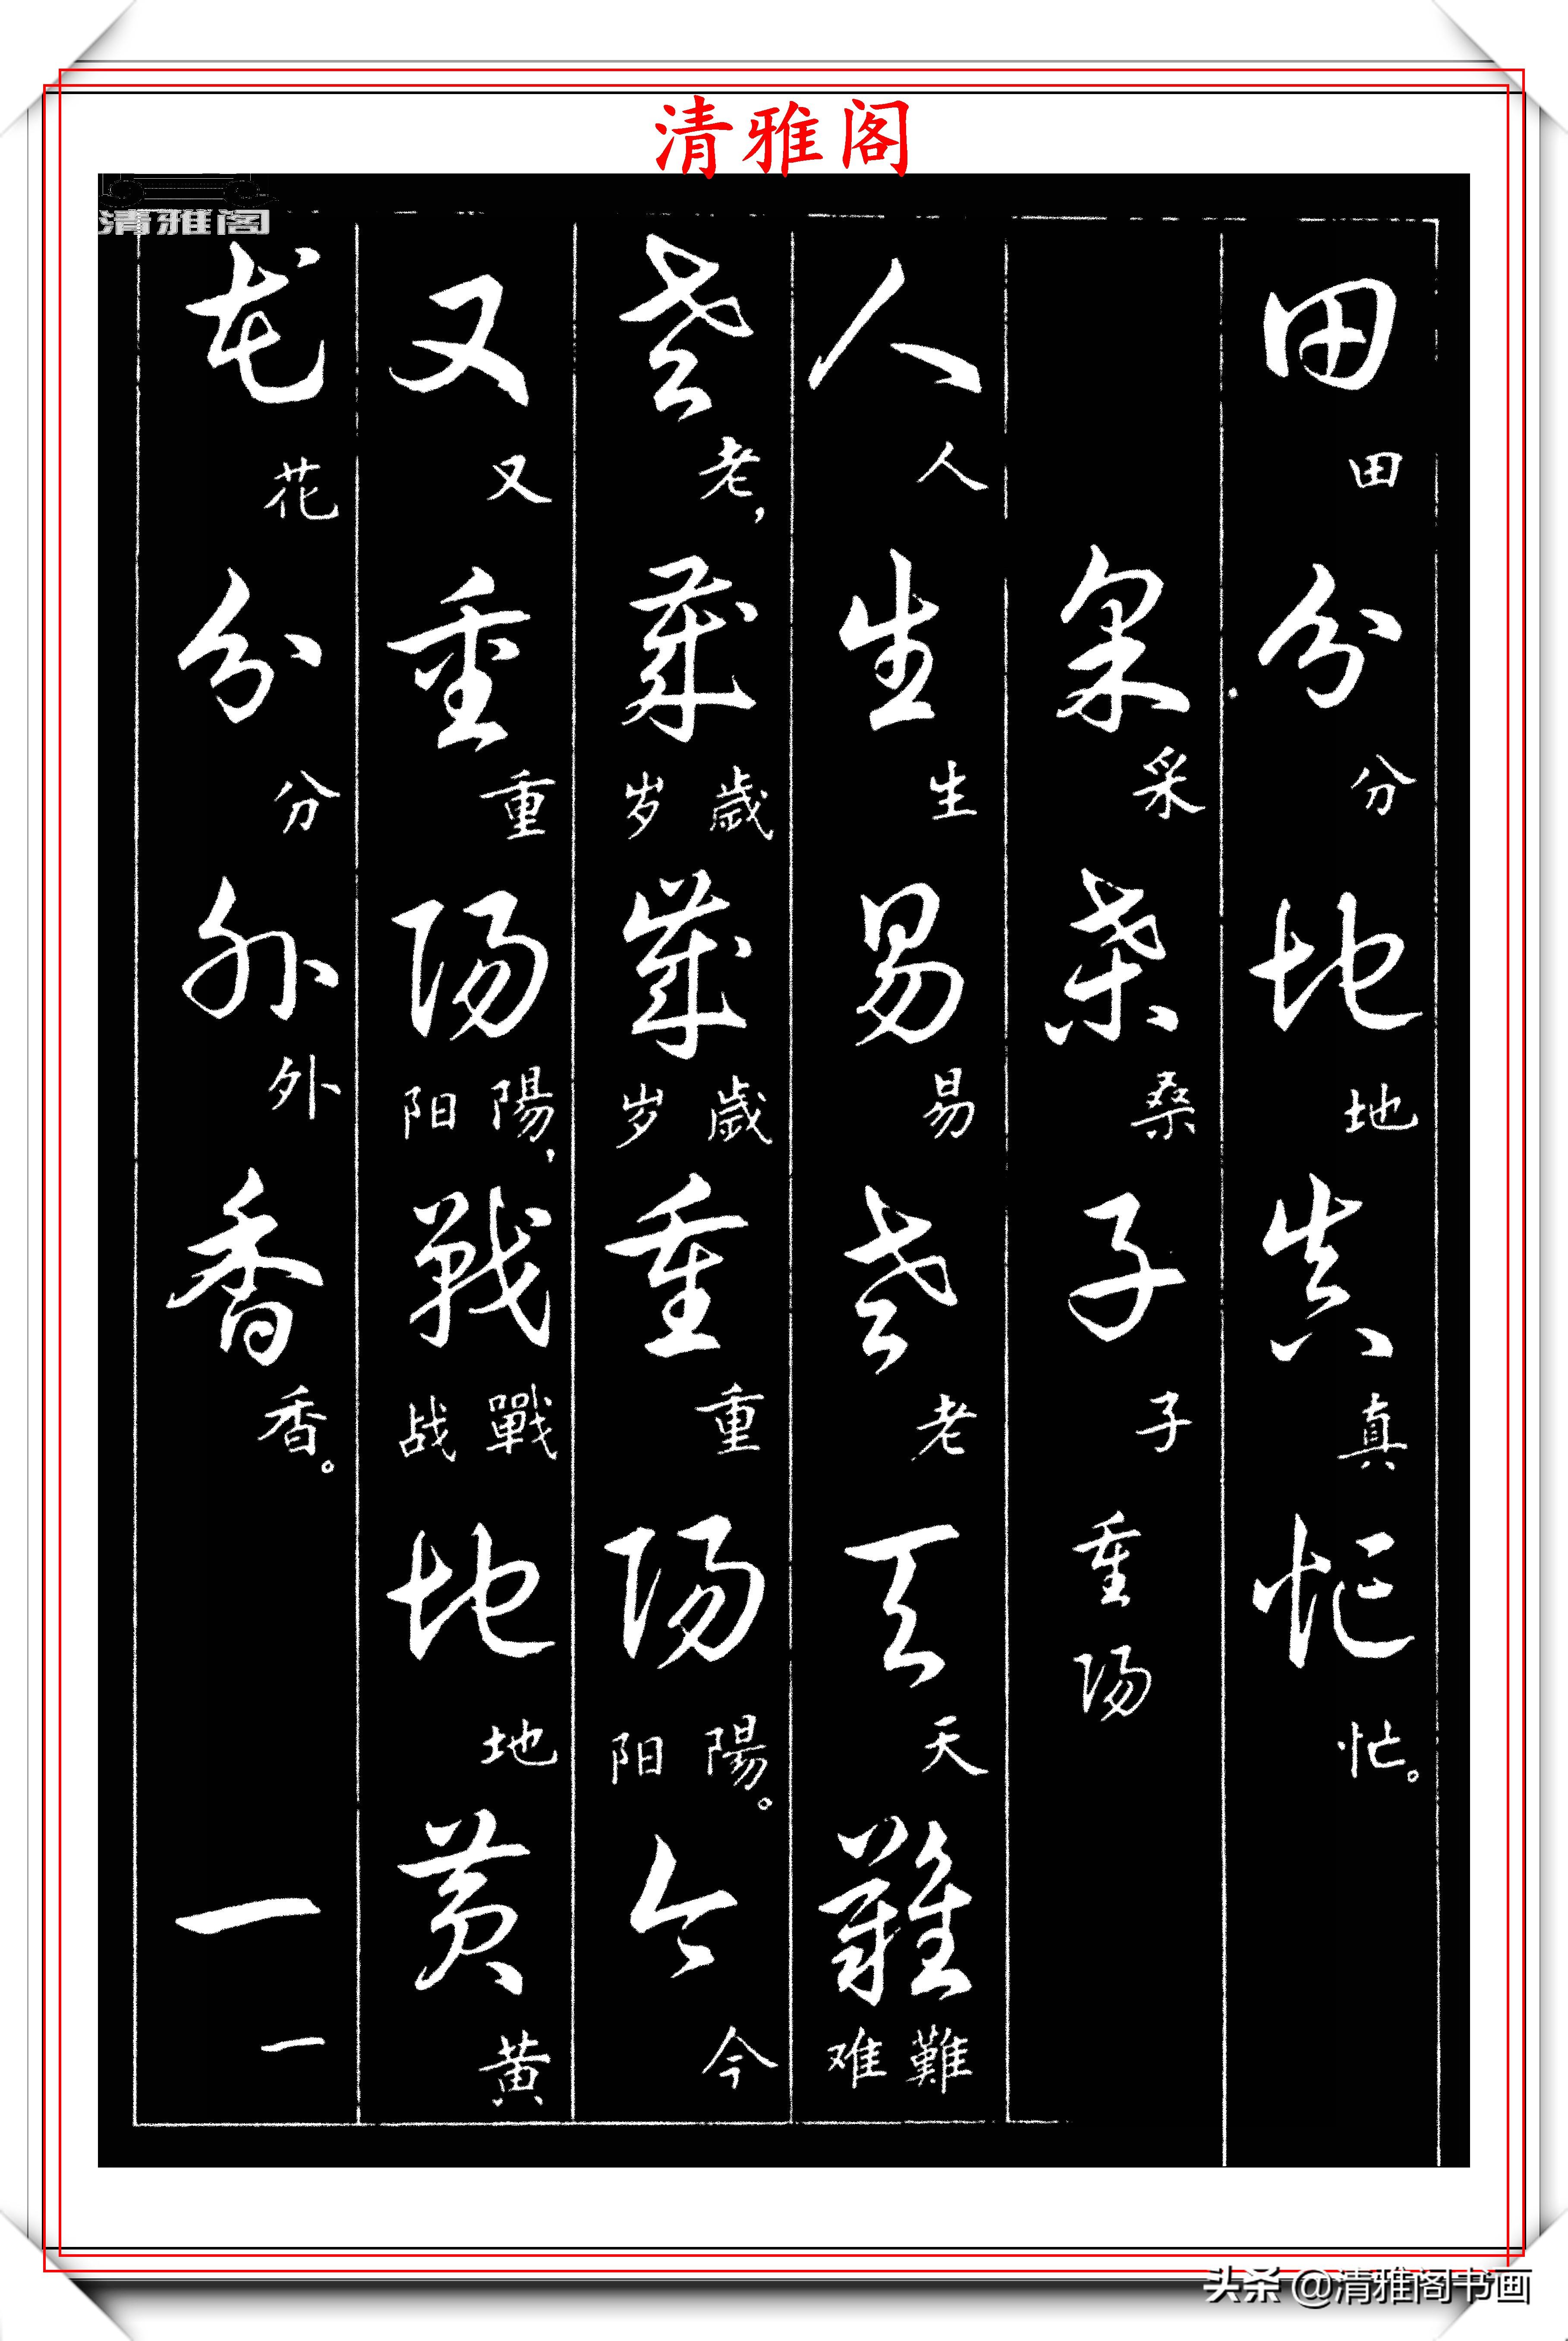 清雅阁
清雅阁
田田分分地地真真忙忙。
采采桑桑子子重阳
人人生生易易老老天天難难難
老老,歲岁歲歲岁歲重重陽阳陽。今今
又又重重陽阳陽,戰战戰地地黄黄
花花分分外外香香。一一
头条 @清雅阁书画